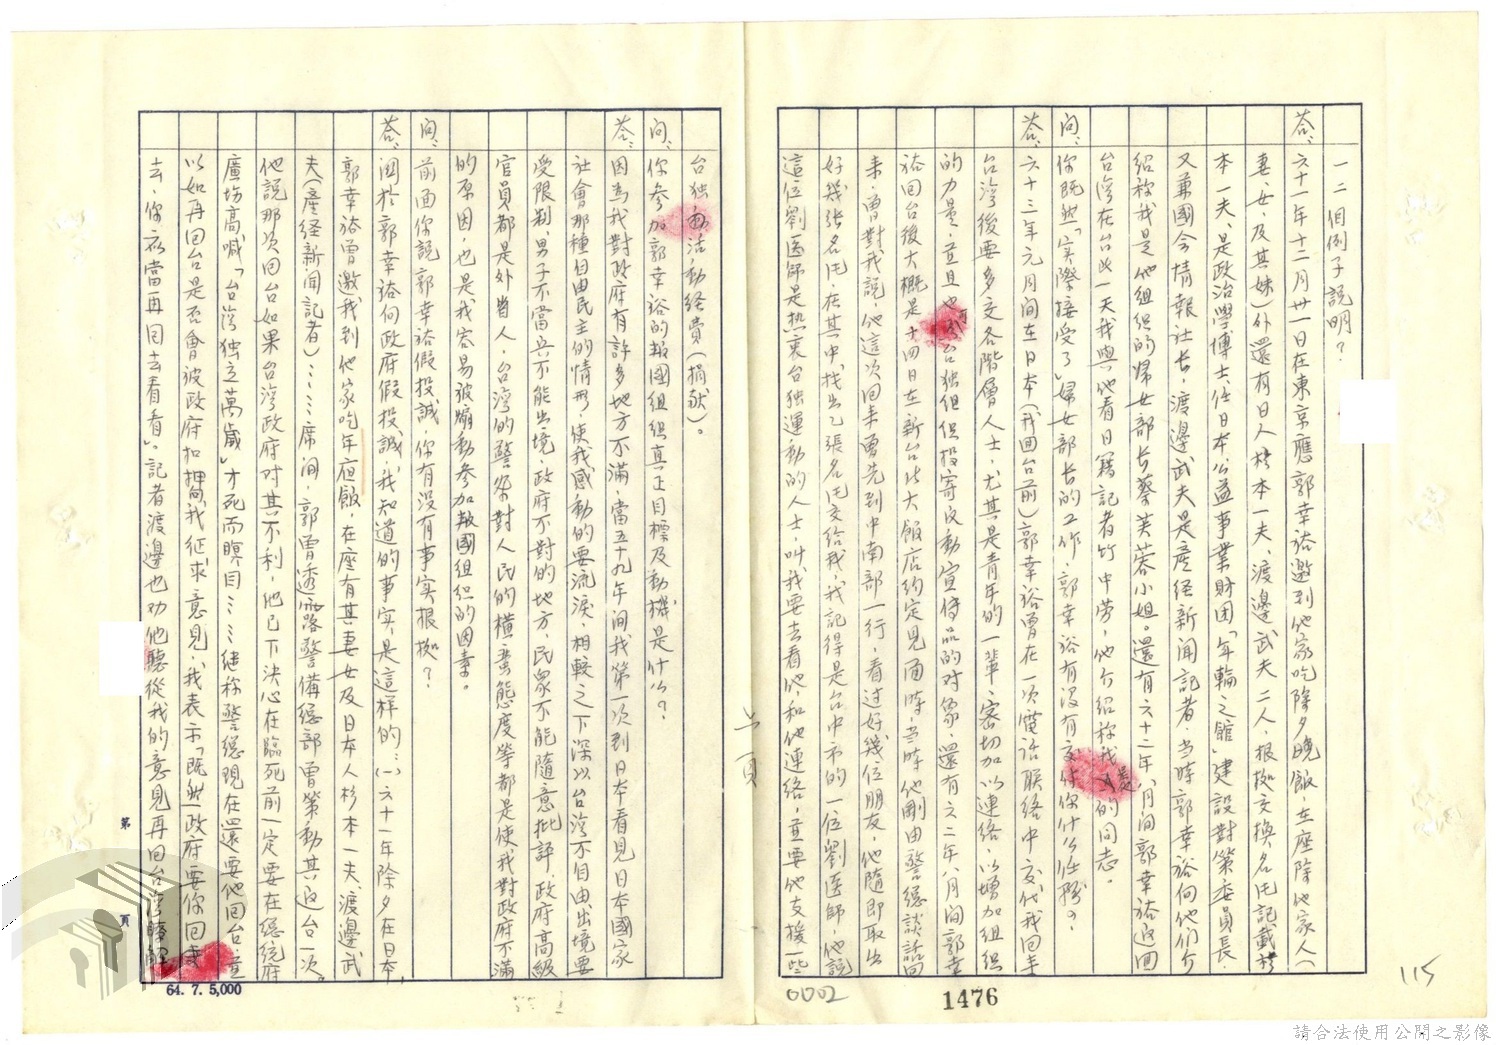 一二個例子說明？
答：六十一年十二月卅一日在東京應郭幸裕邀到他家吃除夕晚飯，在座除他家人（
妻、女、及其妹）外還有日人杉本一夫、渡邊武夫二人，根據交換名片記載杉
本一夫、是政治學博士、任日本公益事業財団「年輪之館」建設對策委員長，
又兼國会情報社長，渡邊武夫是產經新聞記者，當時郭幸裕向他們介
紹称我是他組織的婦女部長蔡芙蓉小姐。還有六十二年 月間郭幸裕返回
台灣在台北一天我與他看日籍記者竹中勞，他介紹称我是 的同志。
問：你既然「实際接受了」婦女部長的工作，郭幸裕有沒有交付你什么任務？
答：六十三年元月間在日本（我回台前）郭幸裕曾在一次電話联络中交代我回到
台灣後要多交各階層人士，尤其是青年的一輩，密切加以連络，以增加組織
的力量，並且也 台独組织投寄反動宣傳品的对象，還有六二年八月間郭幸
裕回台後大概是十四日在新台北大飯店約定見面時，当時他剛由警總談話回
来，曾對我說，他這次回来曾先到中南部一行，看过好幾位朋友，他隨即取出
好幾張名片，在其中找出乙張名片交給我，我記得是台中市的一位劉医師，他說
這位劉医師是热衷台独運動的人士，叫我要去看他和他連络，並要他支援一些
台独 活動経費（捐献）。
問：你參加郭幸裕的叛國組織真正目標及動機是什么？
答：因為我對政府有許多地方不滿，當五十九年间我第一次到日本看見日本國家
社會那種自由民主的情形，使我感動的要流淚，相較之下深以台湾不自由，出境要
受限制，男子不當兵不能出境，政府不對的地方，民眾不能隨意批評，政府高級
官員都是外省人，台湾的警察對人民的橫蛮態度等都是使我對政府不滿
的原因，也是我容易被煽動參加叛國組织的因素。
問：前面你說郭幸裕假投誠，你有沒有事实根據？
答：関於郭幸裕向政府假投誠，我知道的事实是這样的：㈠六十一年除夕在日本，
郭幸裕曾邀我到他家吃年夜飯，在座有其妻女及日本人杉本一夫、渡邊武
夫（產経新聞記者）……席间，郭曾透露警備總部曾策動其返台一次。
他說那次回台如果台湾政府对其不利，他已下決心在臨死前一定要在總統府
廣場高喊「台灣独立萬歲」才死而瞑目……継称警總現在還要他回台，重
以如再回台是否會被政府扣押向我征求意見，我表示「既然政府要你回
去，你應當再回去看看」。記者渡邊也劝他聽從我的意見再回台湾瞭解
上頁
第
頁
64. 7. 5,000
0002
1476
115
請合法使用公開之影像